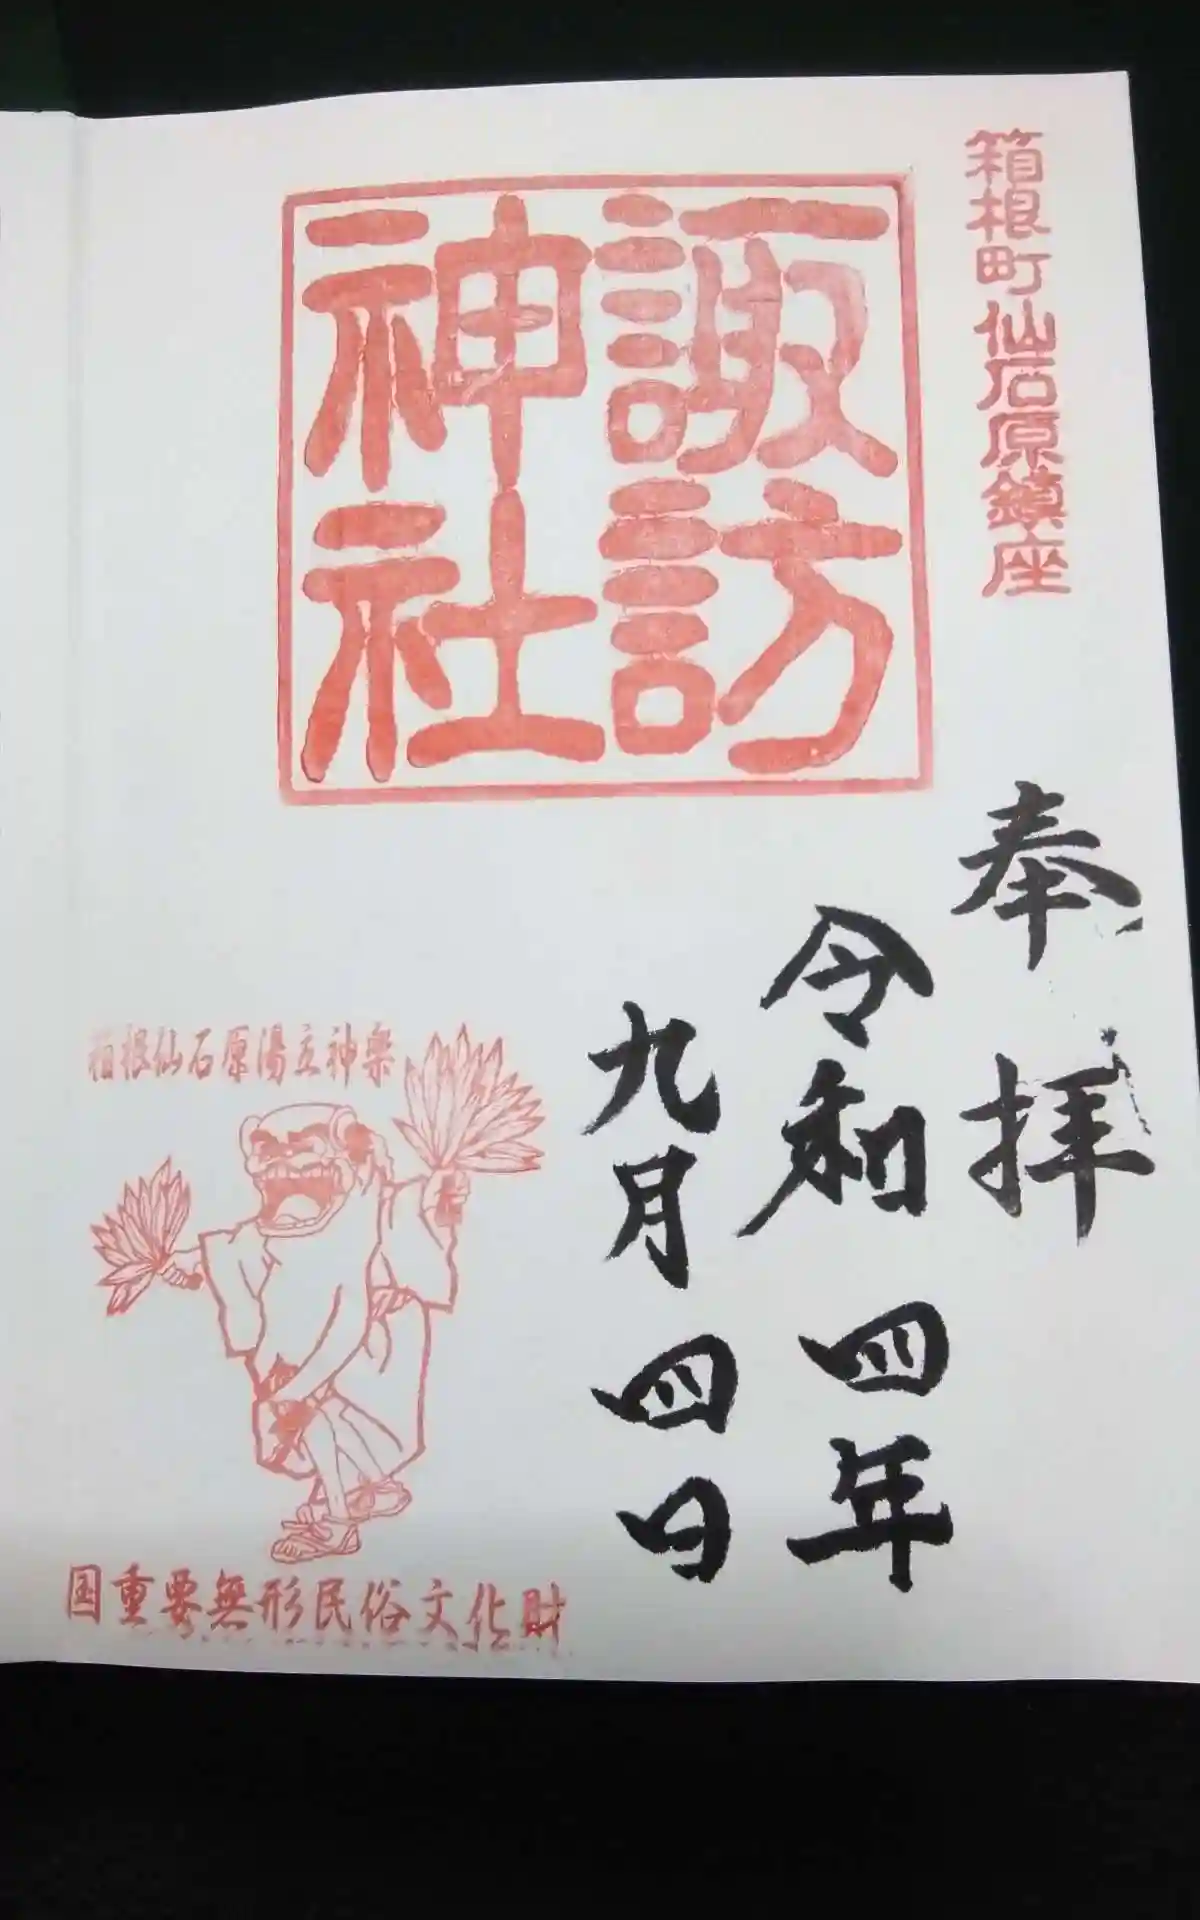 箱根町仙石原鎮座
諏訪
神社
奉拝
令和四年
九月四日
箱根仙石原湯立神楽
国重要無形民俗文化財